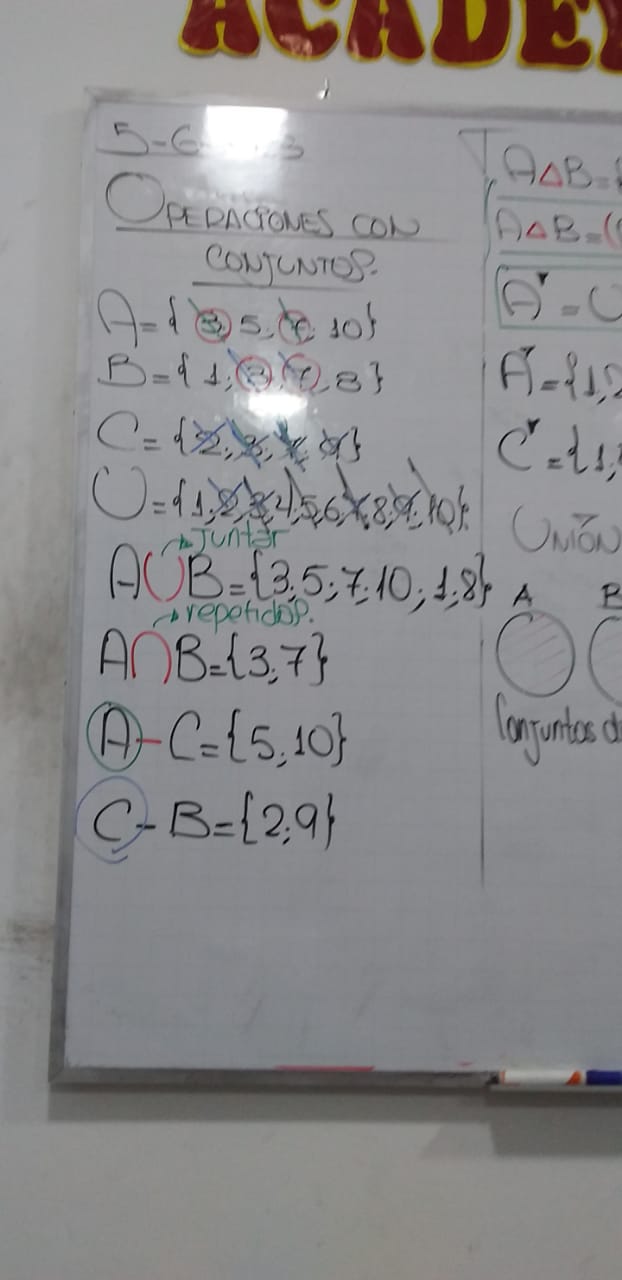 ACADE
5-6-
OPERACIONES CON
CONJUNTOS.
A={3; 5; 7; 10}
B={1; 3; 7; 8}
C={2; 3; 7; 9}
U={1; 2; 3; 4; 5; 6; 7; 8; 9; 10}.
→ Juntar
A∪B={3; 5; 7; 10; 1; 8}
→ repetidos.
A∩B={3; 7}
A-C={5; 10}
C-B={2; 9}
A△B=
A△B=(
A'=U
A'={1; 2
C'={1;
UNIÓN
A B
Conjuntos d